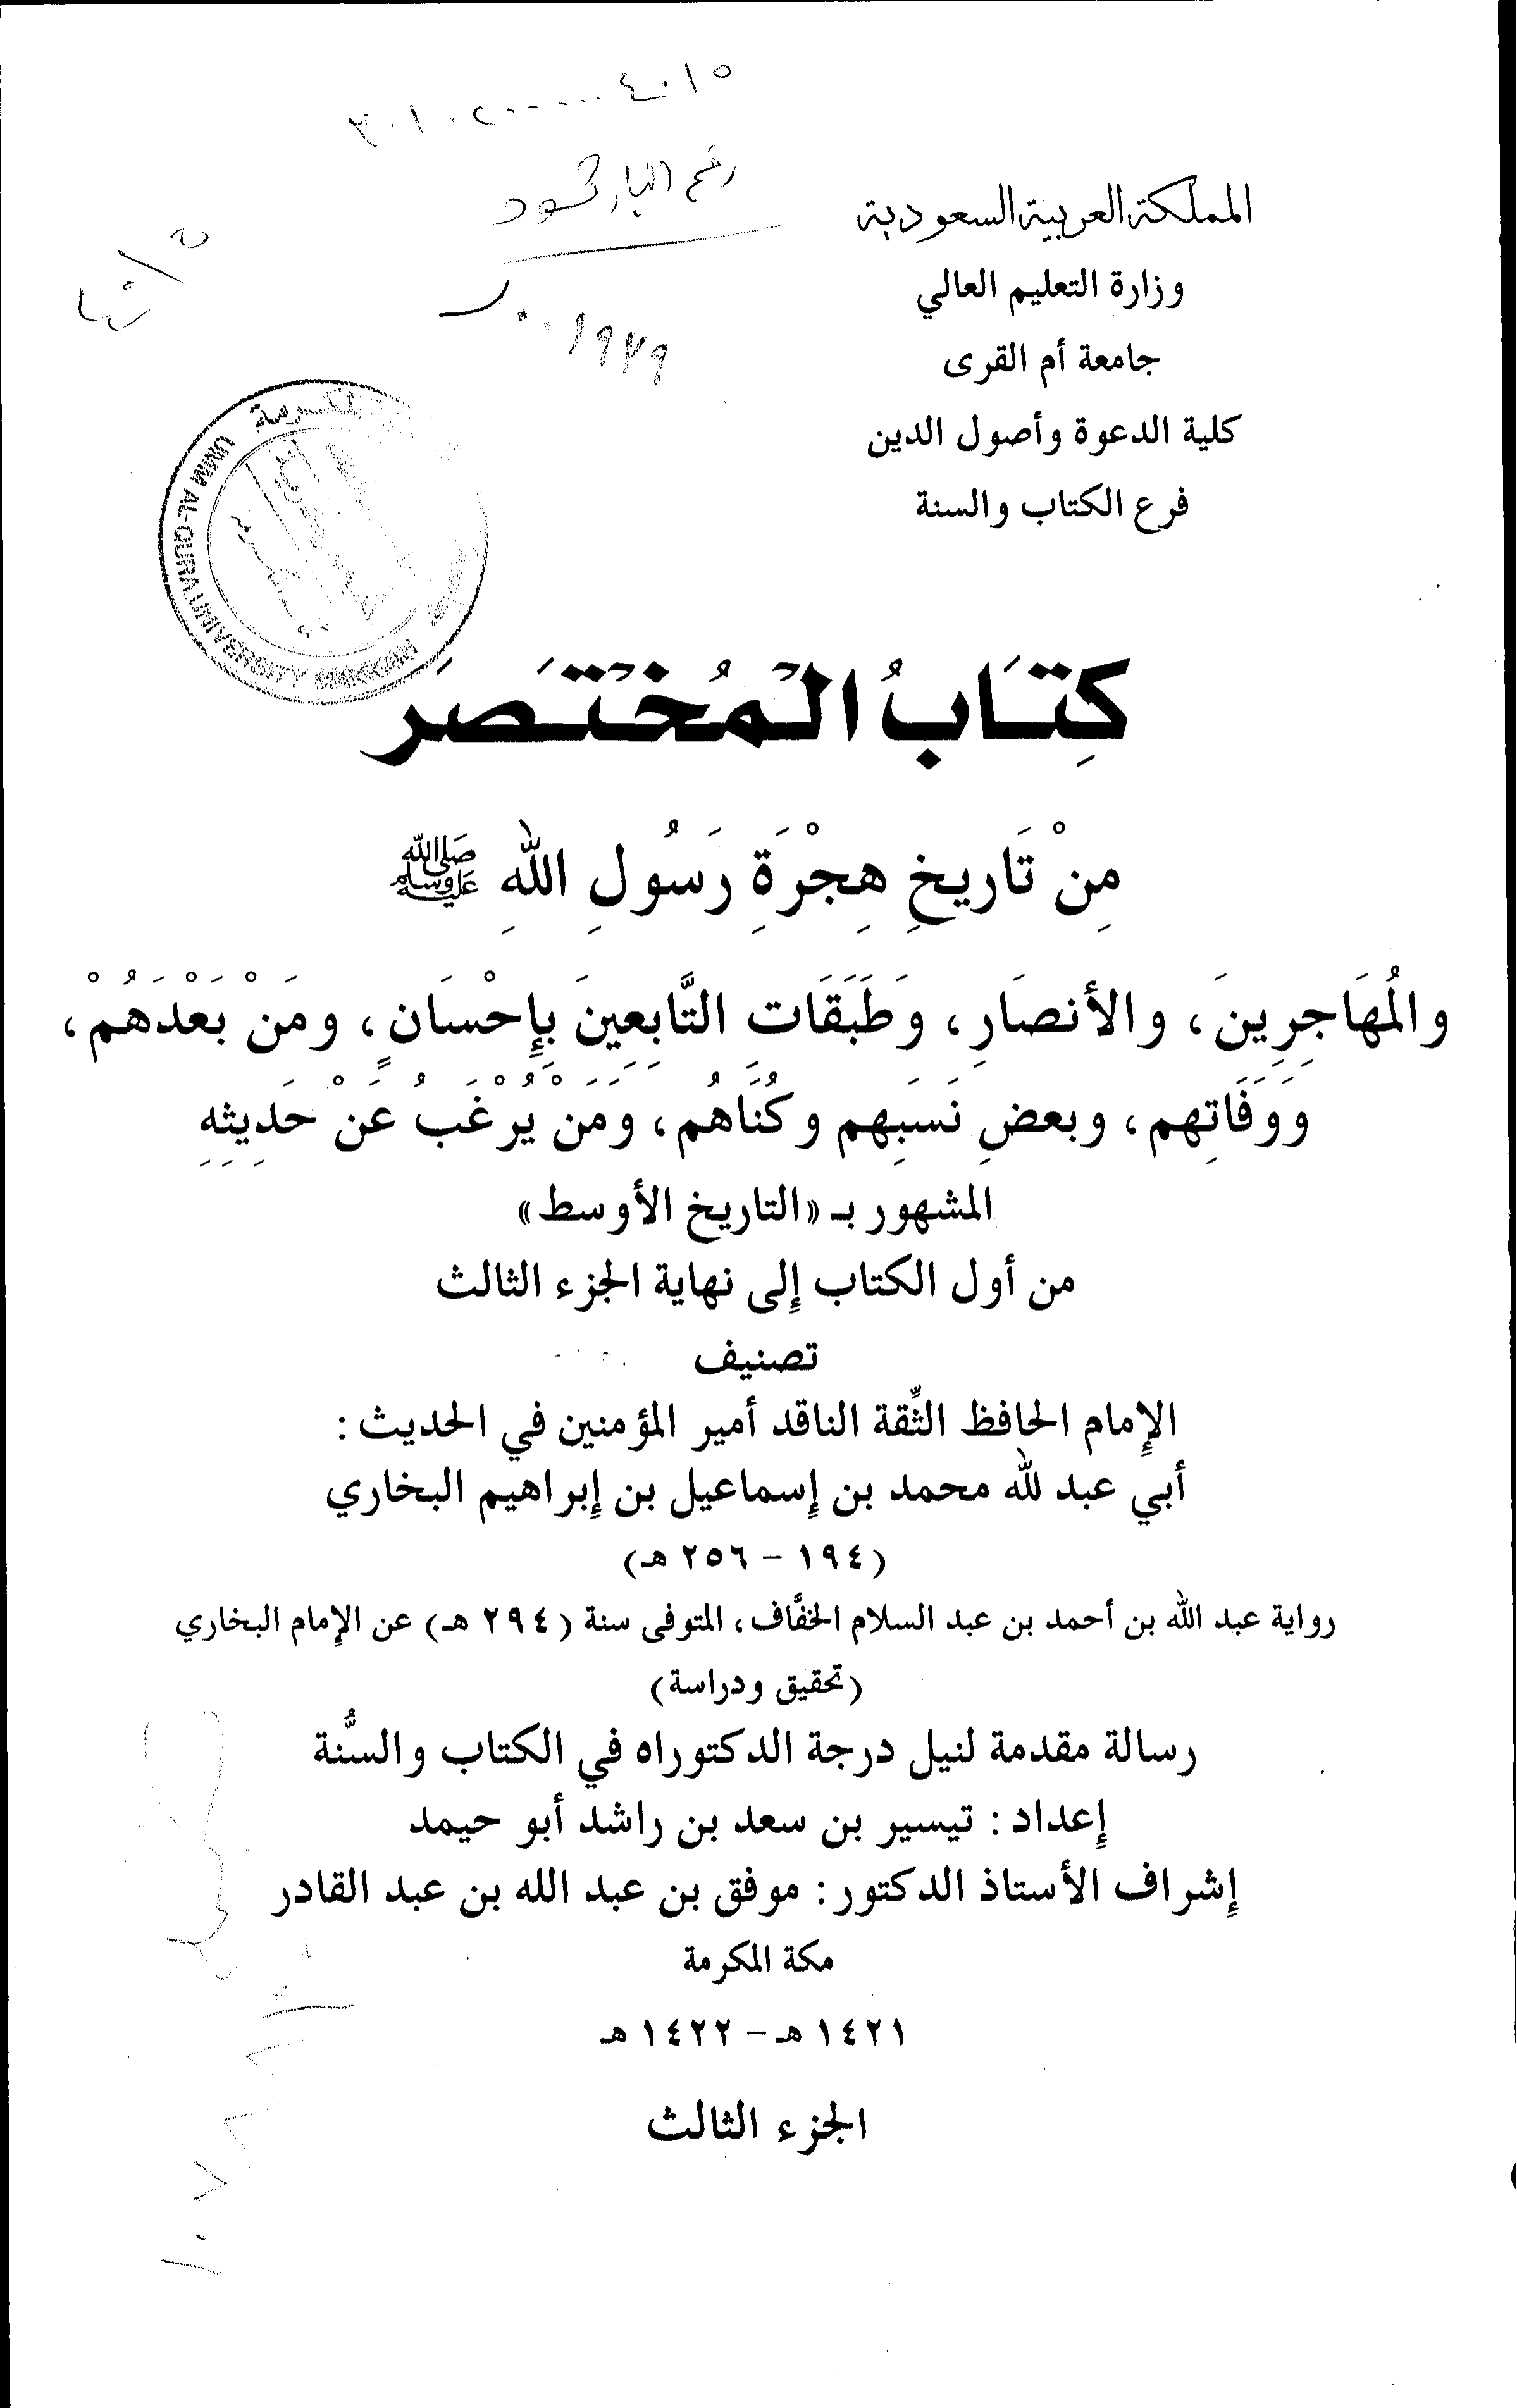 رقم الباركود
المملكة العربية السعودية
وزارة التعليم العالي
جامعة أم القرى
كلية الدعوة وأصول الدين
فرع الكتاب والسنة
UMM AL-QURA UNIVERSITY MAKKAH
كِتَابُ الْمُخْتَصَرَ
مِنْ تَاريخِ هِجْرَةِ رَسُولِ اللهِ ﷺ
والْمُهَاجِرِينَ، والأنصَارِ، وَطَبَقَات التَّابِعِينَ بِإِحْسَانٍ، ومَنْ بَعْدَهُمْ،
وَوَفَاتِهم، وبعضِ نَسَبِهم وكُنَاهُم، وَمَنْ يُرْغَبُ عَنْ حَدِيثِهِ
المشهور بـ «التاريخ الأوسط»
من أول الكتاب إلى نهاية الجزء الثالث
تصنيف
الإمام الحافظ الثِّقة الناقد أمير المؤمنين في الحديث:
أبي عبد لله محمد بن إسماعيل بن إبراهيم البخاري
(١٩٤ - ٢٥٦ هـ)
رواية عبد الله بن أحمد بن عبد السلام الخفَّاف، المتوفى سنة (٢٩٤ هـ) عن الإمام البخاري
(تحقيق ودراسة)
رسالة مقدمة لنيل درجة الدكتوراه في الكتاب والسُّنة
إعداد: تيسير بن سعد بن راشد أبو حيمد
إشراف الأستاذ الدكتور: موفق بن عبد الله بن عبد القادر
مكة المكرمة
١٤٢١ هـ - ١٤٢٢ هـ
الجزء الثالث